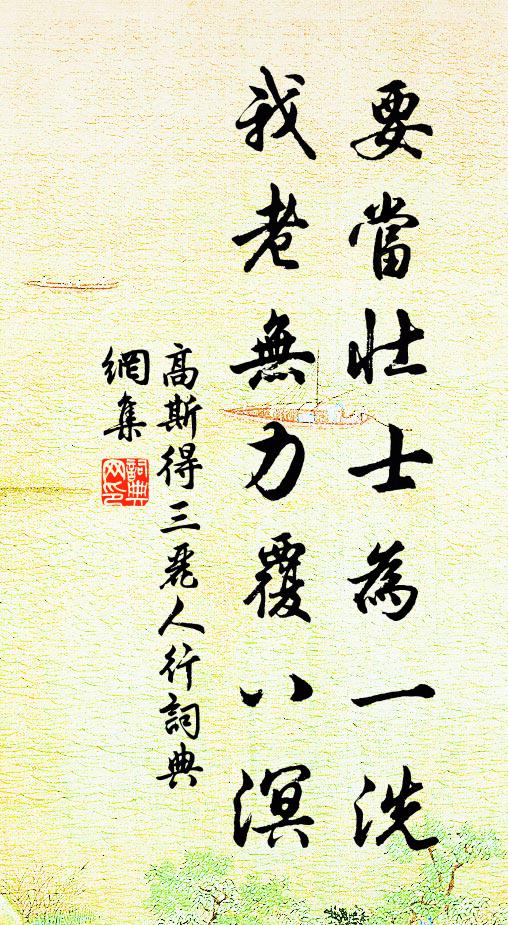 要當壯士為一洗
我老無力覆八溟
高斯得三麗人行詞典
網集
詞典網印